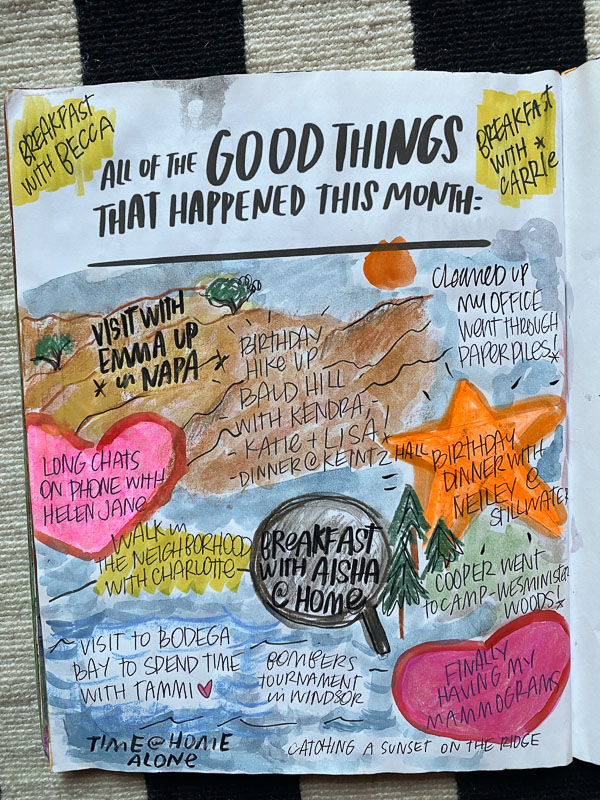 BREAKFAST
WITH BECCA
BREAKFAST
WITH
CARRIE
ALL OF THE GOOD THINGS
THAT HAPPENED THIS MONTH:
VISIT WITH
EMMA UP
in NAPA
BIRTHDAY
HIKE UP
BALD HILL
WITH KENDRA,
KATIE + LISA!
-DINNER@KENTZ HALL
CLEANED UP
MY OFFICE
WENT THROUGH
PAPER PILES!
LONG CHATS
ON PHONE WITH
HELEN JANE
BIRTHDAY
DINNER WITH
NELLEY @
STILLWATER
WALK in
THE NEIGHBORHOOD
WITH CHARLOTTE
BREAKFAST
WITH AISHA
@ HOME
COOPER WENT
TO CAMP-WESMINISTER
WOODS!
VISIT TO BODEGA
BAY TO SPEND TIME
WITH TAMMI
BOMBERS
TOURNAMENT
in WINDSOR
FINALLY
HAVING MY
MAMMOGRAMS
TIME@HOME
ALONE
CATCHING A SUNSET ON THE RIDGE